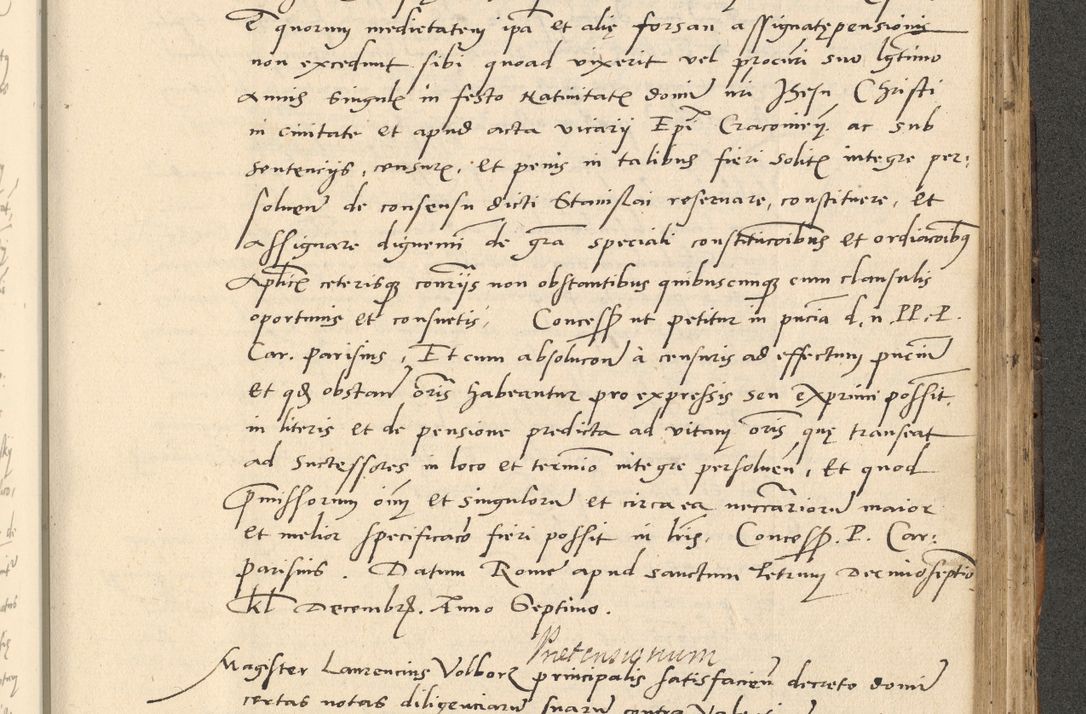 quorum medietatem ipa et alię forsan assignatę pensionis
non excedunt sibi quoad vixerit vel procuri suo lgtimo
Annis Singulis in festo Natiuitatis domini nri Jhesu Christi
in ciuitate et apud acta vicarij Epi Cracouien. ac sub
sentencijs, censuris, et penis in talibus fieri solitis integre per:
soluen de consensu dicti Stanislai reseruare, constituere, et
Assignare dignemi de gra speciali constitucoibus et ordiacoibus
Aplicis ceterisque conrijs non obstantibus quibuscunque cum clausulis
oportunis et consuetis, Concess ut petitur in pncia d. n. PP. P.
Car. Parisius, Et cum absolucone à censuris ad effectum pncium
Et qd obstan oris habeantur pro expressis seu exprimi possit.
in literis et de pensione predicta ad vitam oris que transeat
ad Successores in loco et termino integre persoluen, Et quod
premissorum oim et singulorum et circa ea neccariorum maior
et melior specificaco fieri possit in lris. Concess. P. Car:
Parisius. Datum Rome apud sanctum Petrum Decimoseptio
kl Decembr. Anno Septimo.
Magister Laurencius Volbors principalis satisfacien decreto domini
certas notas diligenciarum suarum contra